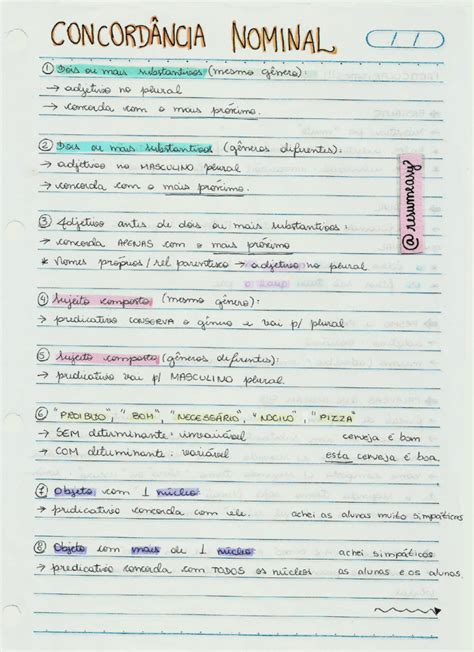 CONCORDÂNCIA NOMINAL
① Dois ou mais substantivos (mesmo gênero):
→ adjetivo no plural
→ concorda com o mais próximo.
② Dois ou mais substantivos (gêneros diferentes):
→ adjetivo no MASCULINO plural
→ concorda com o mais próximo.
@resumeasy
③ Adjetivo antes de dois ou mais substantivos:
→ concorda APENAS com o mais próximo
* Nomes próprios/rel parentesco → adjetivo no plural
④ Sujeito composto (mesmo gênero):
→ predicativo CONSERVA o gênero e vai p/ plural
⑤ Sujeito composto (gêneros diferentes):
→ predicativo vai p/ MASCULINO plural.
⑥ "PROIBIDO", "BOM", "NECESSÁRIO", "NOCIVO", "PIZZA"
→ SEM determinante: invariável cerveja é bom
→ COM determinante: variável esta cerveja é boa.
⑦ Objeto com 1 núcleo:
→ predicativo concorda com ele. achei as alunas muito simpáticas
⑧ Objeto com mais de 1 núcleo: achei simpáticos
→ predicativo concorda com TODOS os núcleos as alunas e os alunos